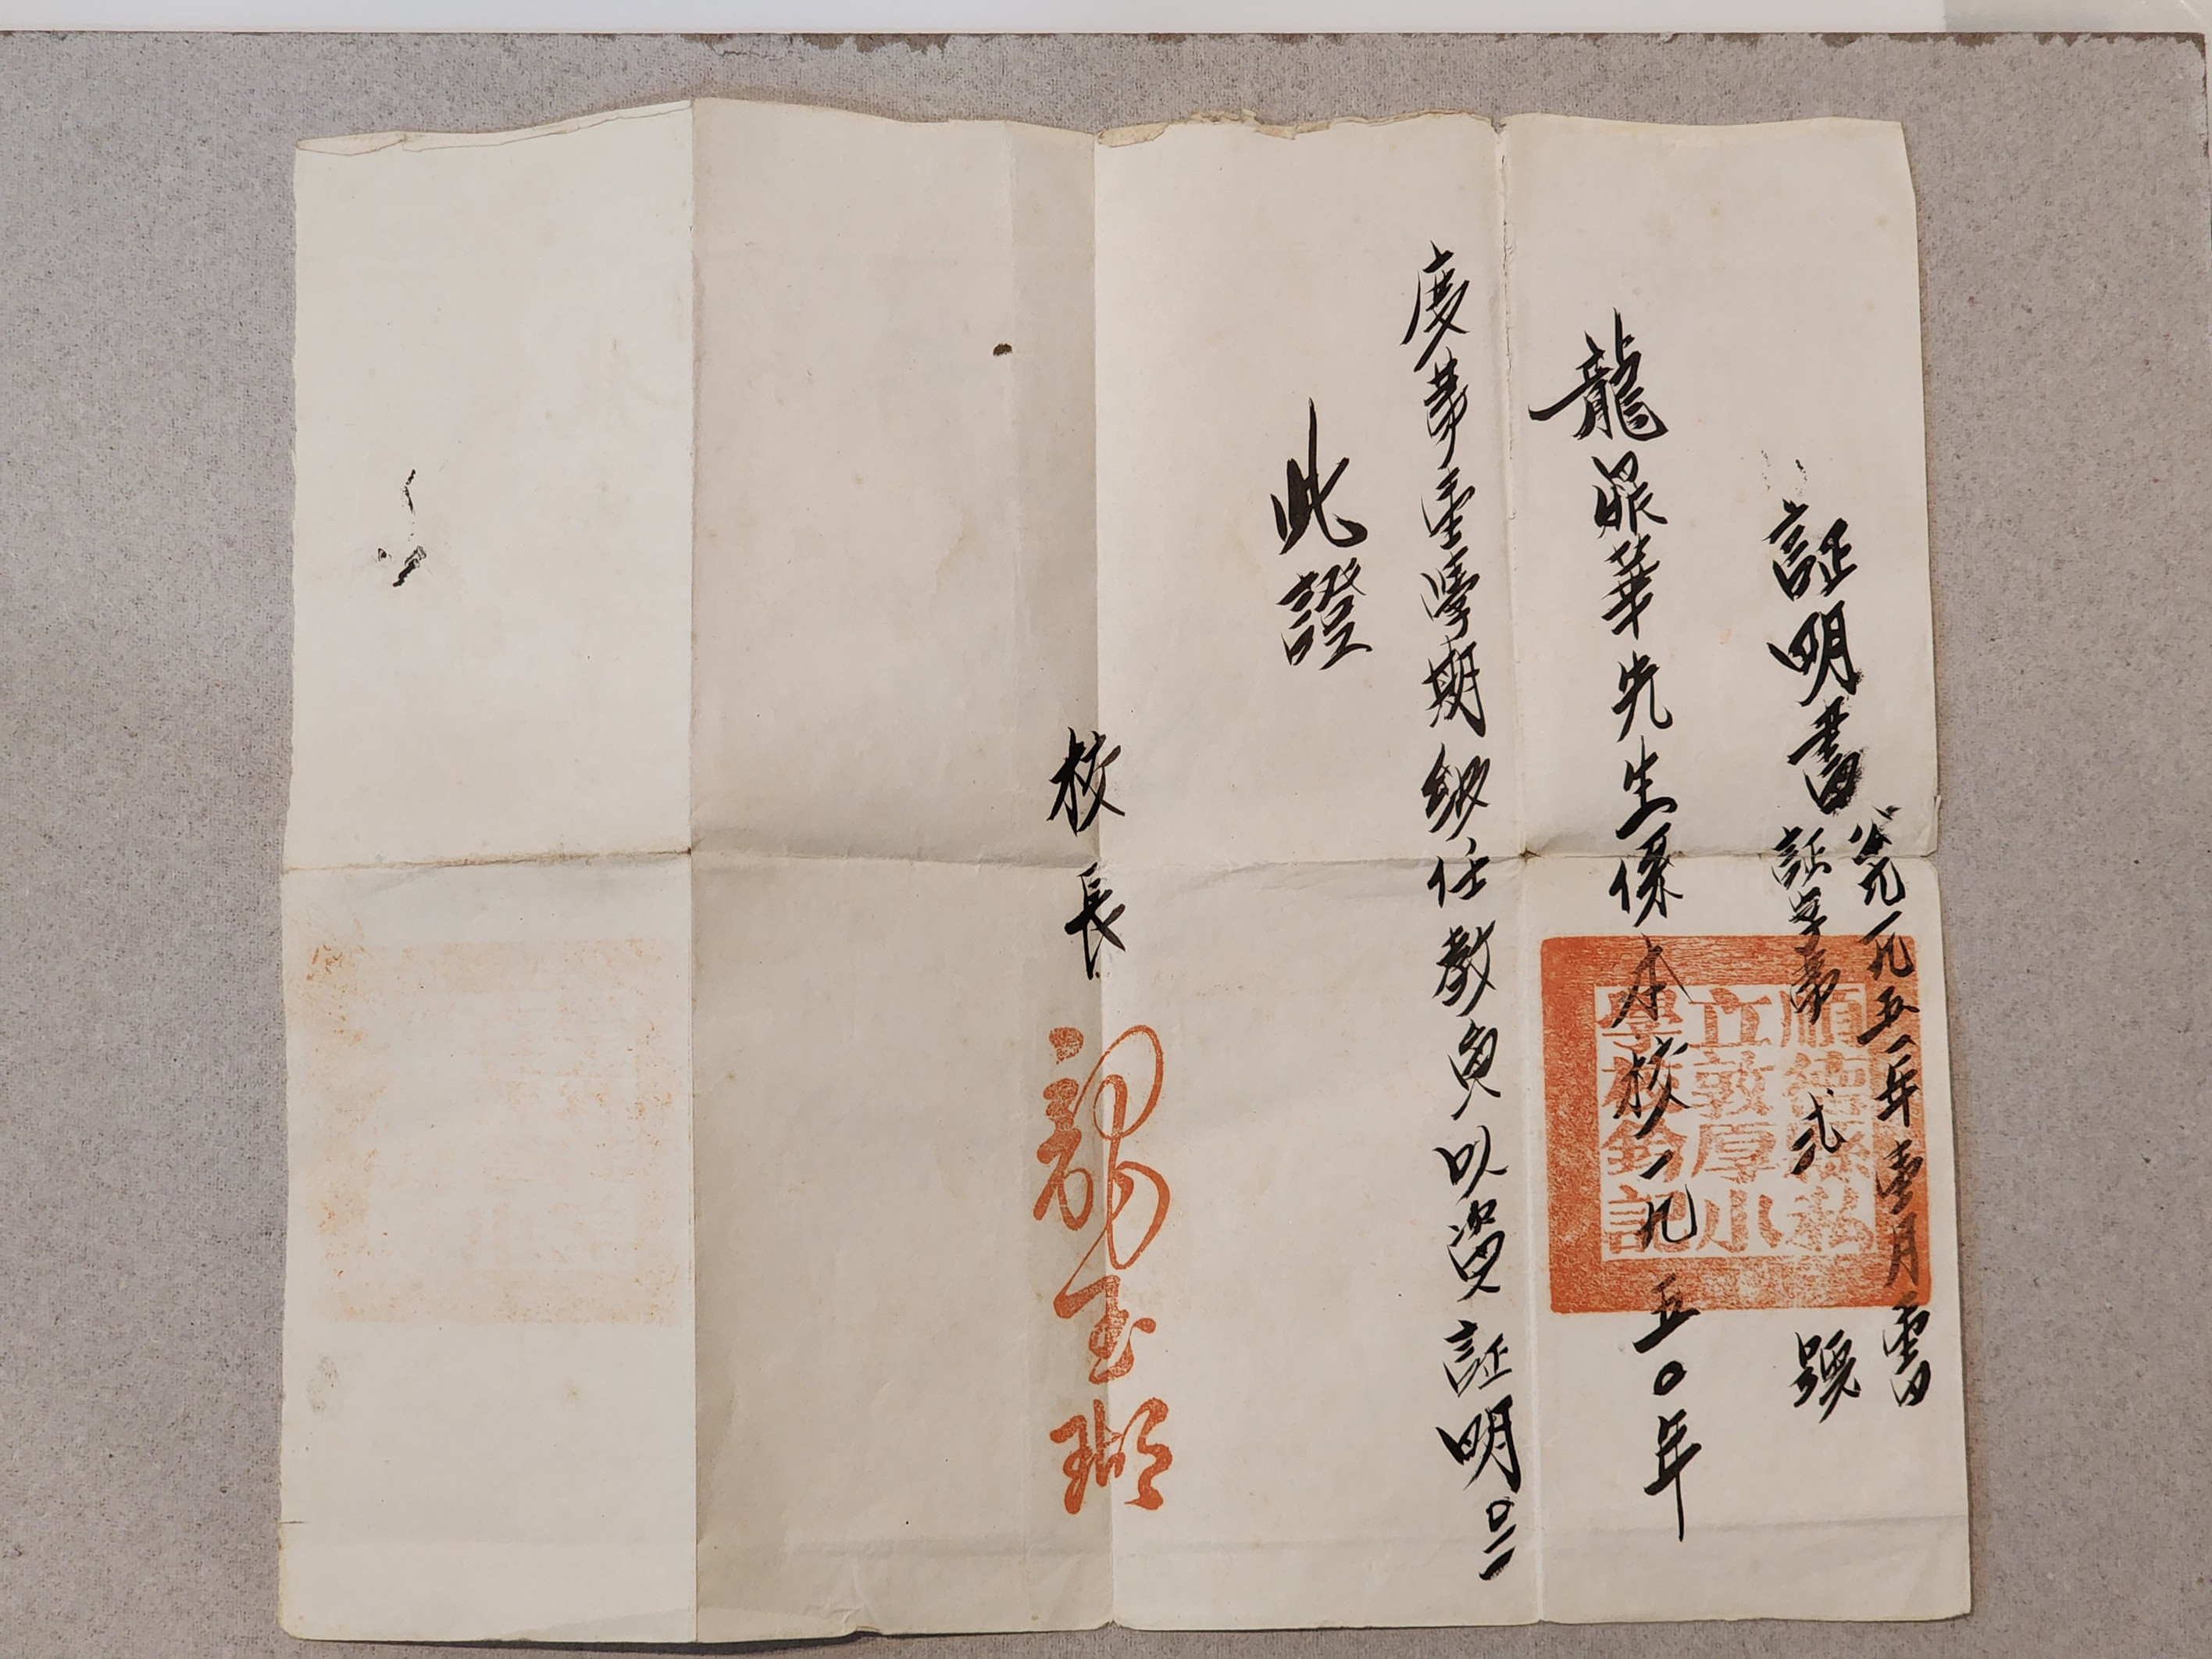 証明書
公元一九五一年壹月 書
証字第 弍 號
龍 華先生係本校一九五〇年
度第壹學期級任教員以資証明
此證
校長
順德縣私
立敦厚小
學校鈐記